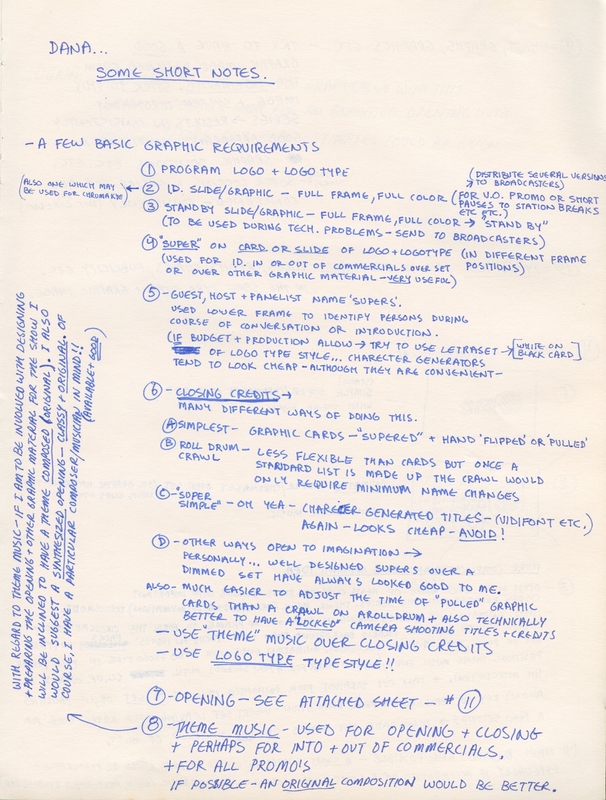 DANA...
SOME SHORT NOTES.
- A FEW BASIC GRAPHIC REQUIREMENTS
① PROGRAM LOGO + LOGO TYPE
(DISTRIBUTE SEVERAL VERSIONS
→ TO BROADCASTERS)
(ALSO ONE WHICH MAY
BE USED FOR CHROMAKYE)
← ② I.D. SLIDE/GRAPHIC - FULL FRAME, FULL COLOR (FOR V.O. PROMO OR SHORT
PAUSES TO STATION BREAKS
ETC ETC.)
③ STANDBY SLIDE/GRAPHIC - FULL FRAME, FULL COLOR → "STAND BY"
(TO BE USED DURING TECH. PROBLEMS - SEND TO BROADCASTERS)
④ "SUPER" ON CARD OR SLIDE OF LOGO + LOGOTYPE (IN DIFFERENT FRAME
POSITIONS)
(USED FOR I.D. IN OR OUT OF COMMERCIALS OVER SET
OR OVER OTHER GRAPHIC MATERIAL - VERY USEFUL)
⑤ - GUEST, HOST + PANELIST NAME 'SUPERS'.
USED LOWER FRAME TO IDENTIFY PERSONS DURING
COURSE OF CONVERSATION OR INTRODUCTION.
(IF BUDGET + PRODUCTION ALLOW → TRY TO USE LETRASET → [WHITE ON
BLACK CARD]
OF LOGO TYPE STYLE... CHARECTER GENERATORS
TEND TO LOOK CHEAP - ALTHOUGH THEY ARE CONVENIENT -
⑥ - CLOSING CREDITS →
MANY DIFFERENT WAYS OF DOING THIS.
Ⓐ SIMPLEST - GRAPHIC CARDS - "SUPERED" + HAND 'FLIPPED' OR 'PULLED'
Ⓑ ROLL DRUM - LESS FLEXIBLE THAN CARDS BUT ONCE A
CRAWL STANDARD LIST IS MADE UP THE CRAWL WOULD
ONLY REQUIRE MINIMUM NAME CHANGES
Ⓒ - "SUPER
SIMPLE" - OH YEA - CHARECTER GENERATED TITLES - (VIDIFONT ETC.)
AGAIN - LOOKS CHEAP - AVOID!
Ⓓ - OTHER WAYS OPEN TO IMAGINATION →
PERSONALLY... WELL DESIGNED SUPERS OVER A
DIMMED SET HAVE ALWAYS LOOKED GOOD TO ME.
ALSO - MUCH EASIER TO ADJUST THE TIME OF "PULLED" GRAPHIC
CARDS THAN A CRAWL ON A ROLLDRUM + ALSO TECHNICALLY
BETTER TO HAVE A "LOCKED" CAMERA SHOOTING TITLES + CREDITS
- USE "THEME" MUSIC OVER CLOSING CREDITS
- USE LOGO TYPE TYPESTYLE!!
⑦ - OPENING - SEE ATTACHED SHEET - # ⑪
⑧ - THEME MUSIC - USED FOR OPENING + CLOSING
+ PERHAPS FOR INTO + OUT OF COMMERCIALS,
+ FOR ALL PROMO'S
IF POSSIBLE - AN ORIGINAL COMPOSITION WOULD BE BETTER.
WITH REGARD TO THEME MUSIC - IF I AM TO BE INVOLVED WITH DESIGNING
+ PREPARING THE OPENING + OTHER GRAPHIC MATERIAL FOR THE SHOW I
WILL BE INCLINED TO HAVE A THEME COMPOSED (ORIGINAL). I ALSO
WOULD SUGGEST A SYNTHESIZED OPENING - CLASSY + ORIGINAL. OF
COURSE, I HAVE A PARTICULAR COMPOSER/MUSICIAN IN MIND!!
(AVAILABLE + GOOD)